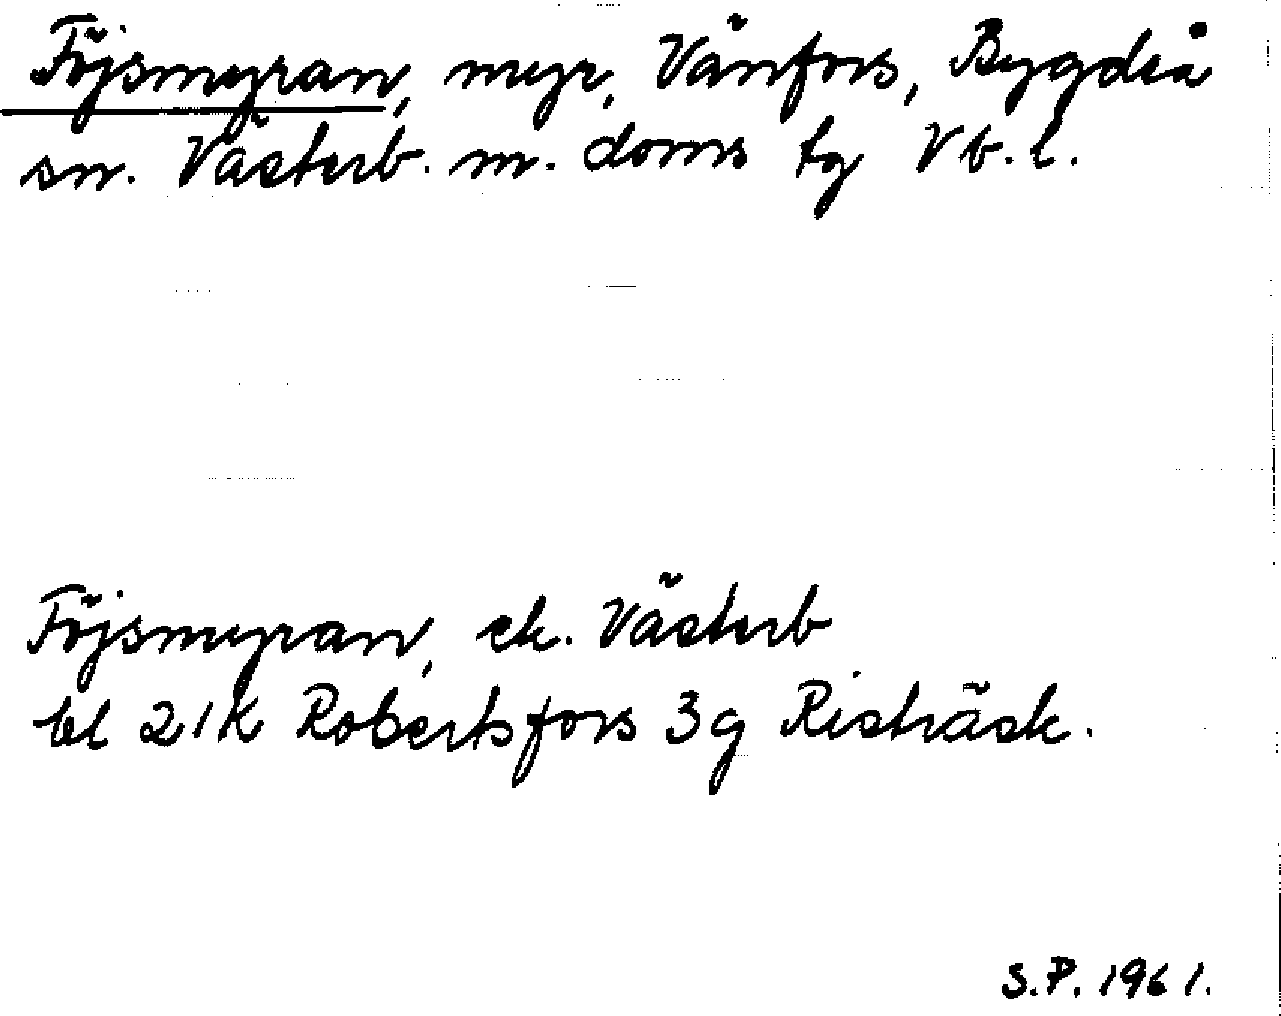 Föjsmyran, myr, Vänfors, Bygdeå
sn. Västerb. m. doms tg Vb. l.
Föjsmyran, ek. Västerb
bl 21K Robertsfors 3g Risträsk.
S.P. 1961.